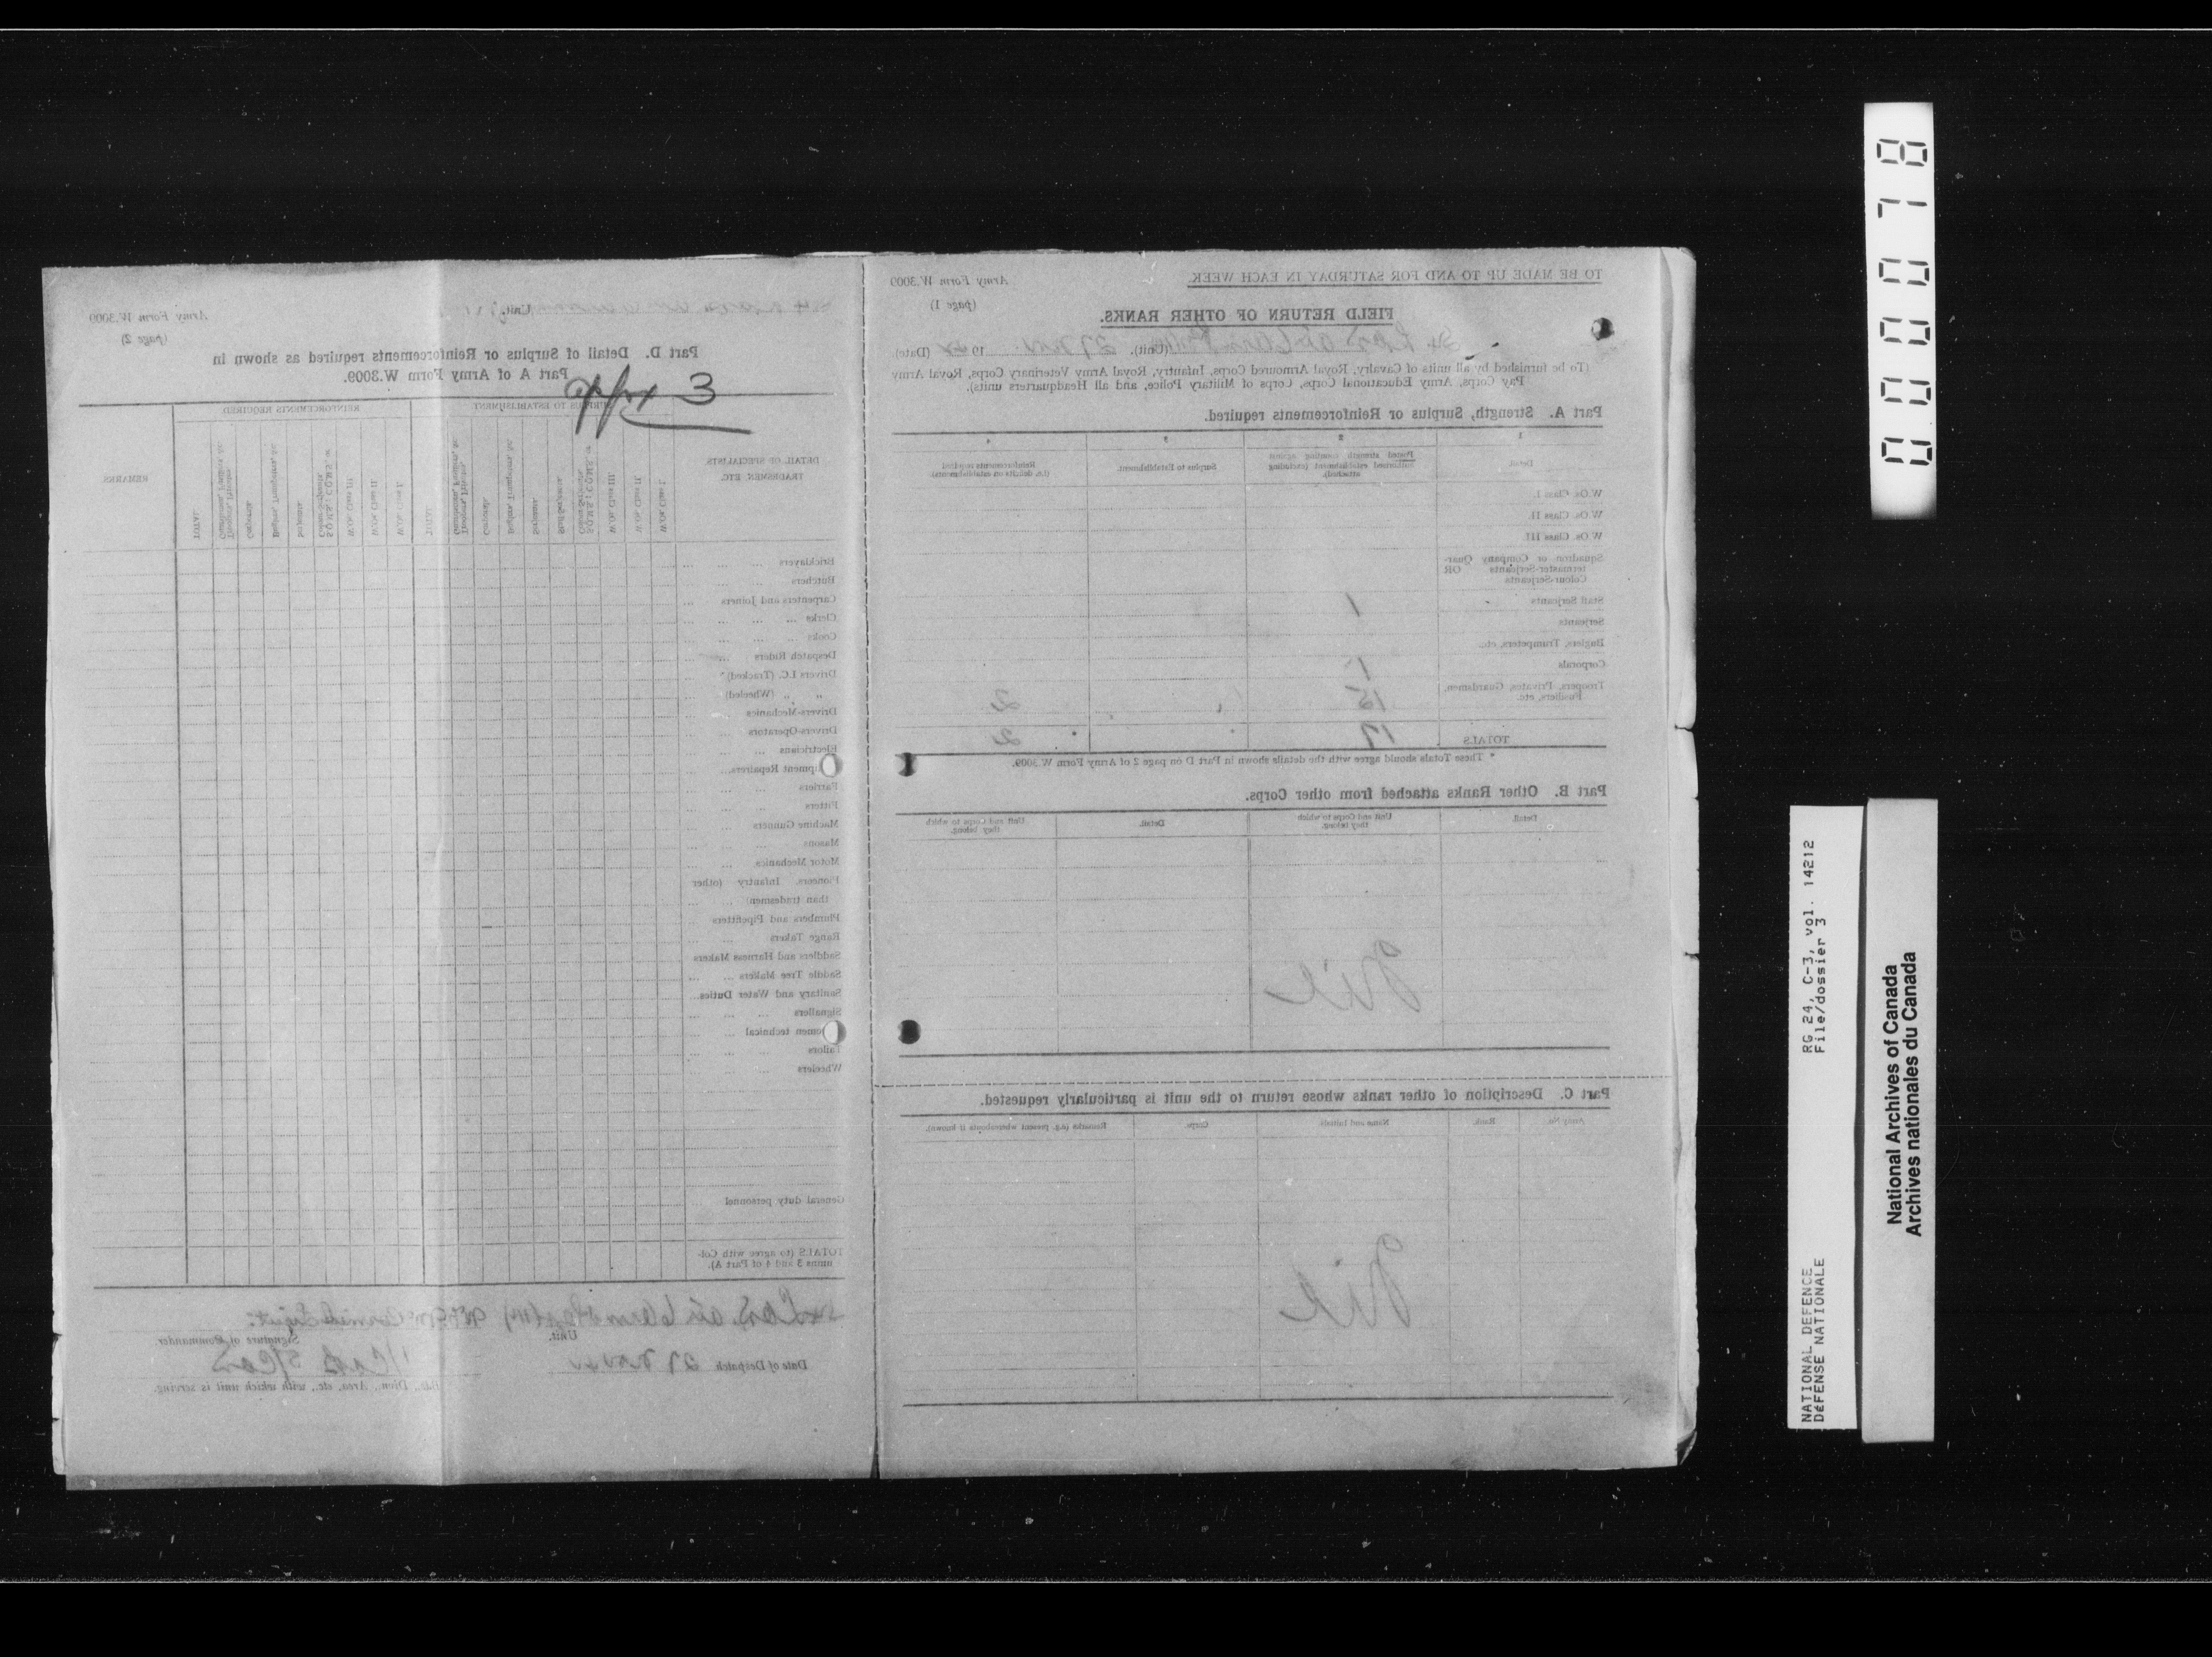 TO BE MADE UP TO AND FOR SATURDAY IN EACH WEEK
Army Form W.3009
(page 1)
FIELD RETURN OF OTHER RANKS.
(Unit). 27 Nov 19 (Date)
(To be furnished by all units of Cavalry, Royal Armoured Corps, Infantry, Royal Army Veterinary Corps, Royal Army
Pay Corps, Army Educational Corps, Corps of Military Police, and all Headquarters units).
Part A. Strength, Surplus or Reinforcements required.
1 2 3 4
Detail.
Posted strength counting against
authorised establishment (excluding
attached).
Surplus to Establishment.
Reinforcements required
(i.e. deficits on establishments).
W.Os. Class I.
W.Os. Class II.
W.Os. Class III.
Squadron or Company Quar-
termaster-Serjeants OR
Colour-Serjeants
Staff Serjeants
1
Serjeants
Buglers, Trumpeters, etc.
Corporals 1
Troopers, Privates, Guardsmen, 15 2
Fusiliers, etc.
TOTALS 17 2
* These Totals should agree with the details shown in Part D on page 2 of Army Form W.3009.
Part B. Other Ranks attached from other Corps.
Detail.
Unit and Corps to which
they belong.
Detail.
Unit and Corps to which
they belong.
Nil
Part C. Description of other ranks whose return to the unit is particularly requested.
Army No. Rank. Name and Initials Corps. Remarks (e.g. present whereabouts if known).
Nil
Unit.
Army Form W.3009
(page 2)
Part D. Detail of Surplus or Reinforcements required as shown in
Part A of Army Form W.3009.
appx 3
DETAIL OF SPECIALISTS
TRADESMEN, ETC.
SURPLUS TO ESTABLISHMENT
REINFORCEMENTS REQUIRED
REMARKS
W.Os. Class I.
W.Os. Class II.
W.Os. Class III
Staff Serjeants
Serjeants
Buglers, Trumpeters, &c
Corporals
TOTAL
W.Os. Class I.
W.Os. Class II
W.Os. Class III
Serjeants
Buglers, Trumpeters, &c
Corporals
TOTAL
Bricklayers
Butchers
Carpenters and Joiners
Clerks
Cooks
Despatch Riders
Drivers I.C. (Tracked)
" " (Wheeled)
Drivers-Mechanics
Drivers-Operators
Electricians
Equipment Repairers
Farriers
Fitters
Machine Gunners
Masons
Motor Mechanics
Pioneers, Infantry (other
than tradesmen)
Plumbers and Pipefitters
Range Takers
Saddlers and Harness Makers
Saddle Tree Makers
Sanitary and Water Duties
Signallers
technical
Tailors
Wheelers
General duty personnel
TOTALS (to agree with Col-
umns 3 and 4 of Part A).
Unit.
Signature of Commander.
Date of Despatch 27 Nov
Bde., Divn., Area, etc., with which unit is serving.
000078
RG 24, C-3, vol. 14212
File/dossier 3
NATIONAL DEFENCE
DÉFENSE NATIONALE
National Archives of Canada
Archives nationales du Canada